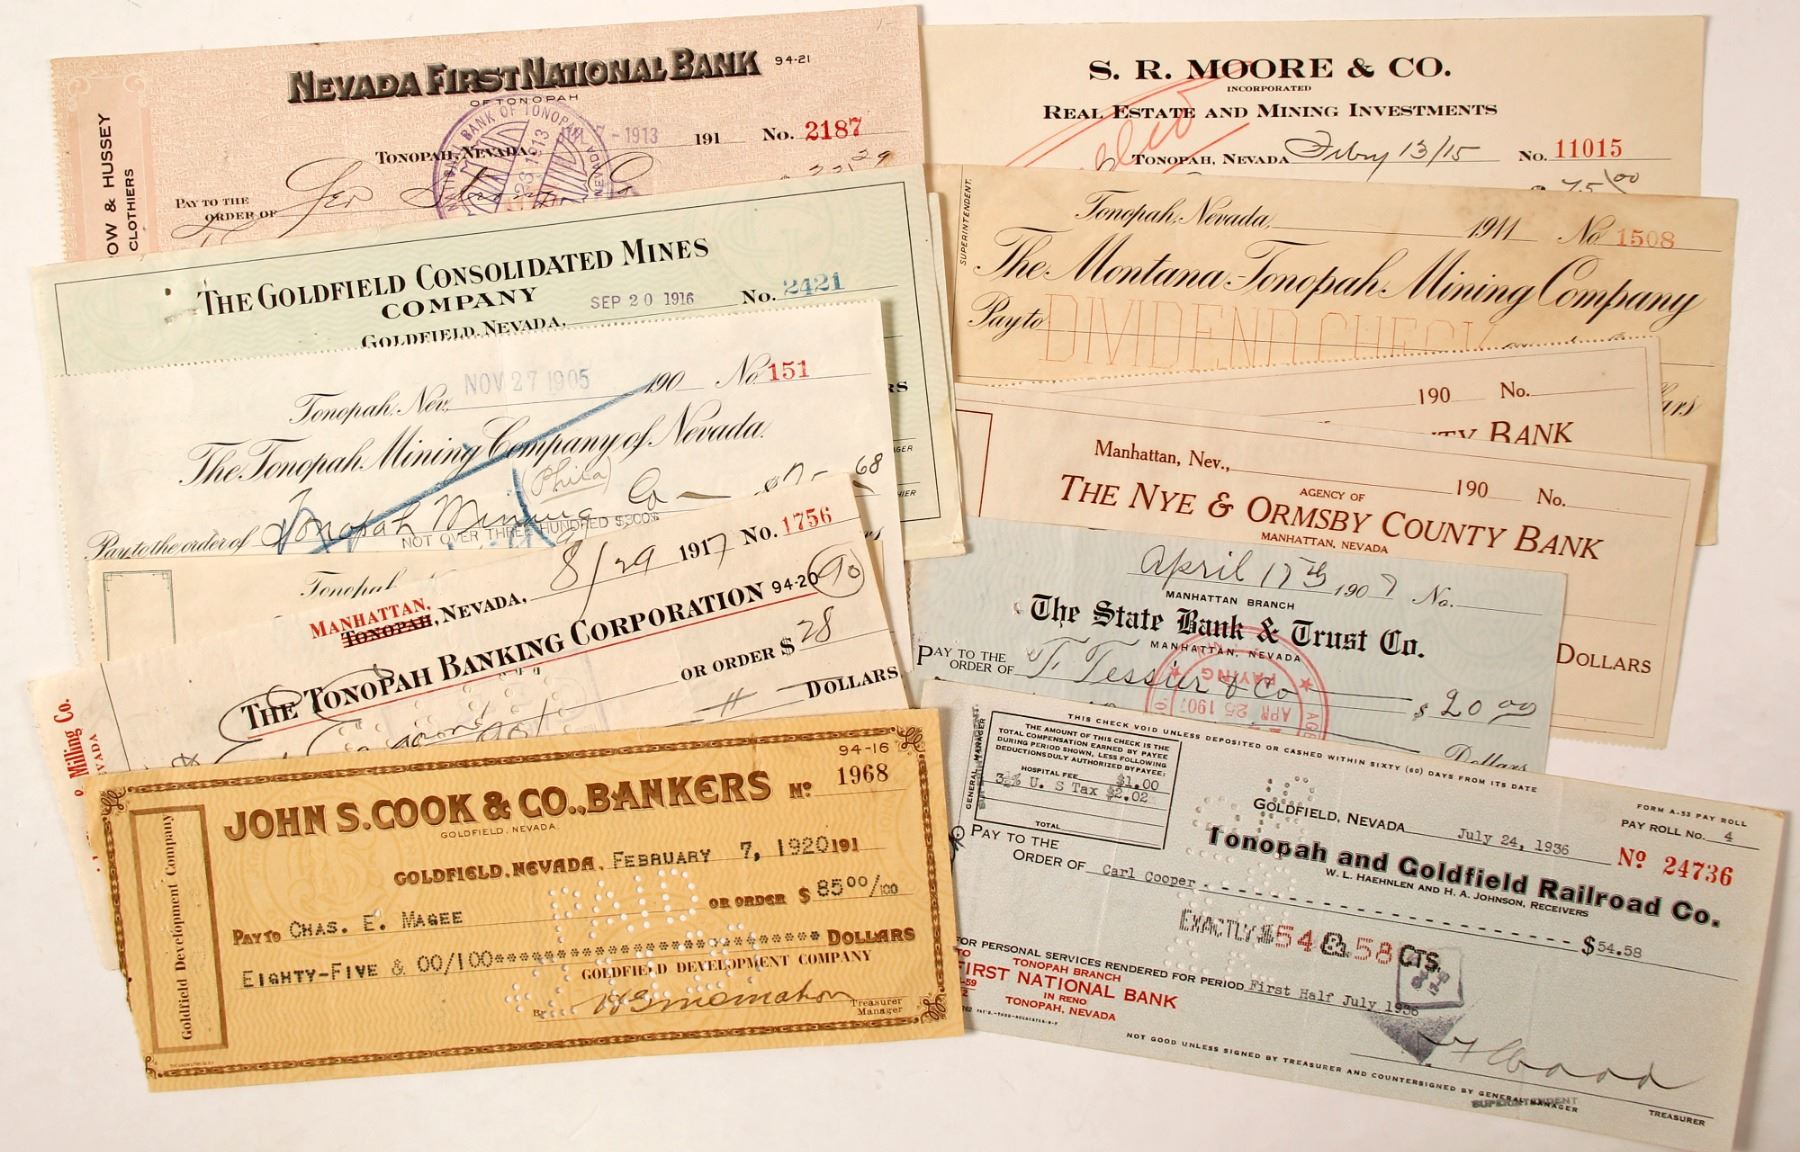 NEVADA FIRST NATIONAL BANK 94-21
OF TONOPAH
TONOPAH, NEVADA 191 No. 2187
PAY TO THE
ORDER OF
OW & HUSSEY
CLOTHIERS
S. R. MOORE & CO.
INCORPORATED
REAL ESTATE AND MINING INVESTMENTS
TONOPAH, NEVADA Feby 13/15 No. 11015
75 00
THE GOLDFIELD CONSOLIDATED MINES
COMPANY
SEP 20 1916 No. 2421
GOLDFIELD, NEVADA,
SUPERINTENDENT.
Tonopah, Nevada, 1911 No 1508
The Montana-Tonopah Mining Company
Pay to DIVIDEND CHECK
Tonopah, Nev. NOV 27 1905 190 No. 151
The Tonopah Mining Company of Nevada.
(Phila)
Pay to the order of Tonopah Mining Co
NOT OVER THREE HUNDRED $300$
190 No.
TY BANK
Manhattan, Nev., 190 No.
AGENCY OF
THE NYE & ORMSBY COUNTY BANK
MANHATTAN, NEVADA
DOLLARS
Tonopah
8/29 1917 No. 1756
MANHATTAN,
TONOPAH, NEVADA,
THE TONOPAH BANKING CORPORATION 94-20 90
OR ORDER $ 28
DOLLARS
Milling Co.
April 17th 1907 No.
MANHATTAN BRANCH
The State Bank & Trust Co.
MANHATTAN, NEVADA
PAY TO THE
ORDER OF T. Tessier & Co $ 20 00
PAYING
APR 25 1907
Dollars
94-16
JOHN S. COOK & CO., BANKERS No 1968
GOLDFIELD, NEVADA.
GOLDFIELD, NEVADA, FEBRUARY 7, 1920 191
PAID
OR ORDER $ 85 00/100
PAY TO CHAS. E. MAGEE
EIGHTY-FIVE & 00/100************************** DOLLARS
GOLDFIELD DEVELOPMENT COMPANY
By
Treasurer
Manager
Goldfield Development Company
THIS CHECK VOID UNLESS DEPOSITED OR CASHED WITHIN SIXTY (60) DAYS FROM ITS DATE
THE AMOUNT OF THIS CHECK IS THE
TOTAL COMPENSATION EARNED BY PAYEE
DURING PERIOD SHOWN, LESS FOLLOWING
DEDUCTIONS DULY AUTHORIZED BY PAYEE:
HOSPITAL FEE $1.00
3½% U. S Tax $2.02
TOTAL
GENERAL MANAGER
FORM A-53 PAY ROLL
PAY ROLL No. 4
GOLDFIELD, NEVADA July 24, 1936
Tonopah and Goldfield Railroad Co.
No 24736
W. L. HAEHNLEN AND H. A. JOHNSON, RECEIVERS
PAY TO THE
ORDER OF Carl Cooper
$54.58
EXACTLY $54 & 58 CTS
FOR PERSONAL SERVICES RENDERED FOR PERIOD First Half July 1936
TO TONOPAH BRANCH
FIRST NATIONAL BANK
IN RENO
TONOPAH, NEVADA
NOT GOOD UNLESS SIGNED BY TREASURER AND COUNTERSIGNED BY GENERAL MANAGER
SUPERINTENDENT
TREASURER